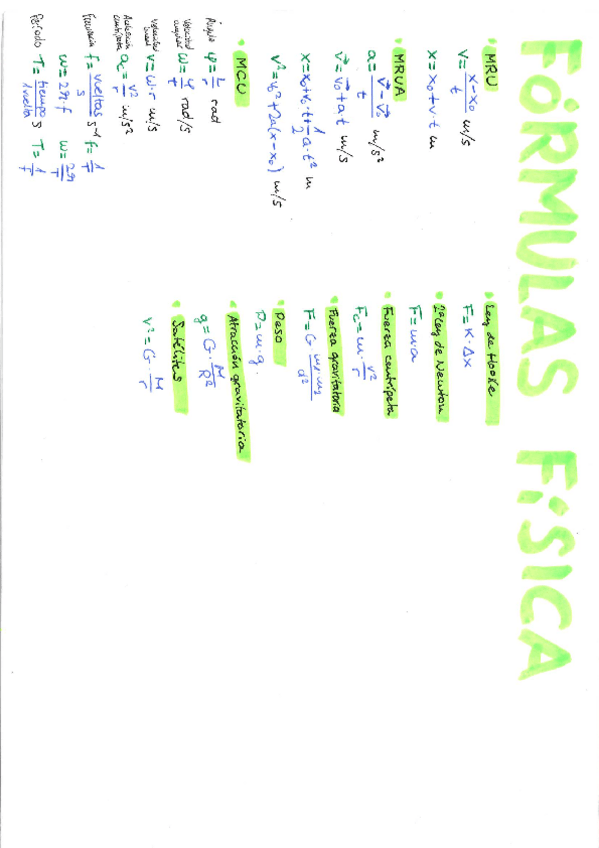 FÓRMULAS FÍSICA
• MRU
V = x - x₀ / t m/s
x = x₀ + v · t m
• MRUA
a = v⃗ - v⃗₀ / t m/s²
v⃗ = v⃗₀ + a · t m/s
x = x₀ + v₀ · t + 1/2 a · t² m
v² = v₀² + 2a(x - x₀) m/s
• MCU
Ángulo φ = L/r rad
Velocidad angular ω = φ/t rad/s
Velocidad lineal v = ω · r m/s
Aceleración centrípeta ac = v²/r m/s²
Frecuencia f = vueltas/s s⁻¹ f = 1/T
ω = 2π · f ω = 2π/T
Período T = tiempo/1 vuelta s T = 1/f
• Ley de Hooke
F = K · Δx
• 2ª Ley de Newton
F = m · a
• Fuerza centrípeta
Fc = m · v²/r
• Fuerza gravitatoria
F = G m₁ · m₂ / d²
• Peso
P = m · g.
• Atracción gravitatoria
g = G · M/R²
• Satélites
v² = G · M/r